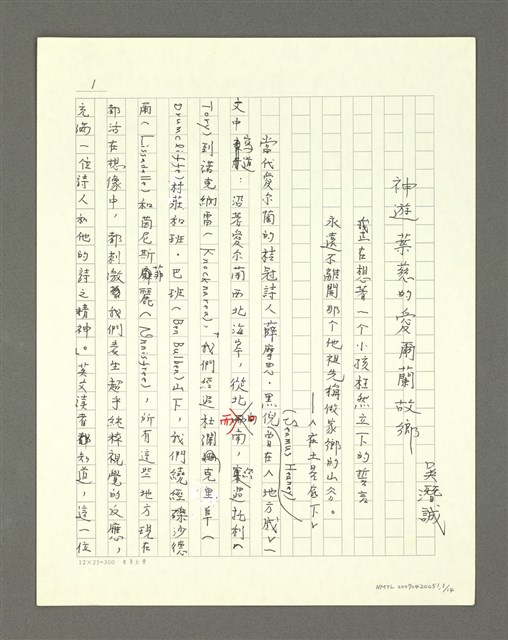 1
神遊葉慈的愛爾蘭故鄉
吳潛誠
我正在想著一個小孩在然立下的誓言
永遠不離開那个他祖先稱做家鄉的山谷。
——《在土星底下》
當代愛尔蘭的桂冠詩人薛摩思·黑倪(Seamus Heaney)曾在〈地方感〉一
文中寫道：沿着愛尔蘭西北海岸，從北而南，經過托利(
Tory)到諾克納雷(Knocknarea)，「我們經過杜
Drumcliffe)村莊和班·巴班(Ben Bulben)山下，我們繞經磔沙德
爾(Lissadelle)和茵尼斯菲麗(Innisfree)，所有這些地方現在
都活在想像中，都刺激我們產生超乎純粹視覺的反應，
充滿一位詩人和他的詩之精神。」英文讀者都知道，這一位
12×25=300
NMTL 20090420051, 1/14